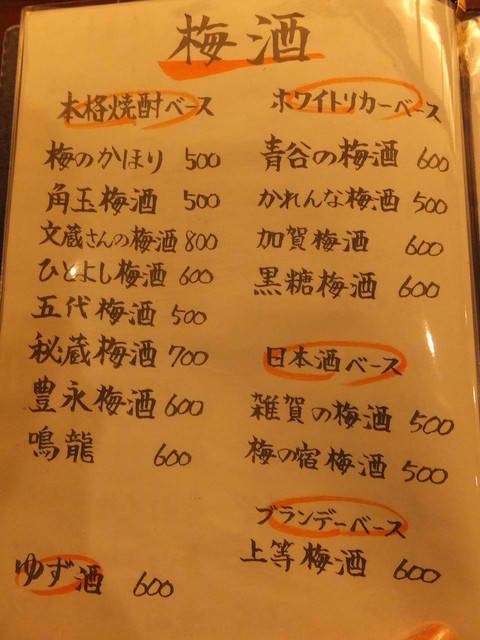 梅酒
本格焼酎ベース
梅のかほり 500
角玉梅酒 500
文蔵さんの梅酒 800
ひとよし梅酒 600
五代梅酒 500
秘蔵梅酒 700
豊永梅酒 600
鳴龍 600
ゆず酒 600
ホワイトリカーベース
青谷の梅酒 600
かれんな梅酒 500
加賀梅酒 600
黒糖梅酒 600
日本酒ベース
雑賀の梅酒 500
梅の宿梅酒 500
ブランデーベース
上等梅酒 600